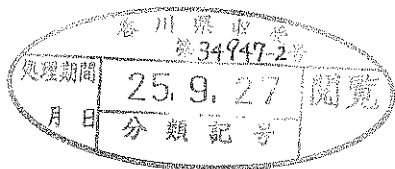 香川県収受
第34947-2号
処理期間
25. 9. 27
閲覧
月 日
分類記号